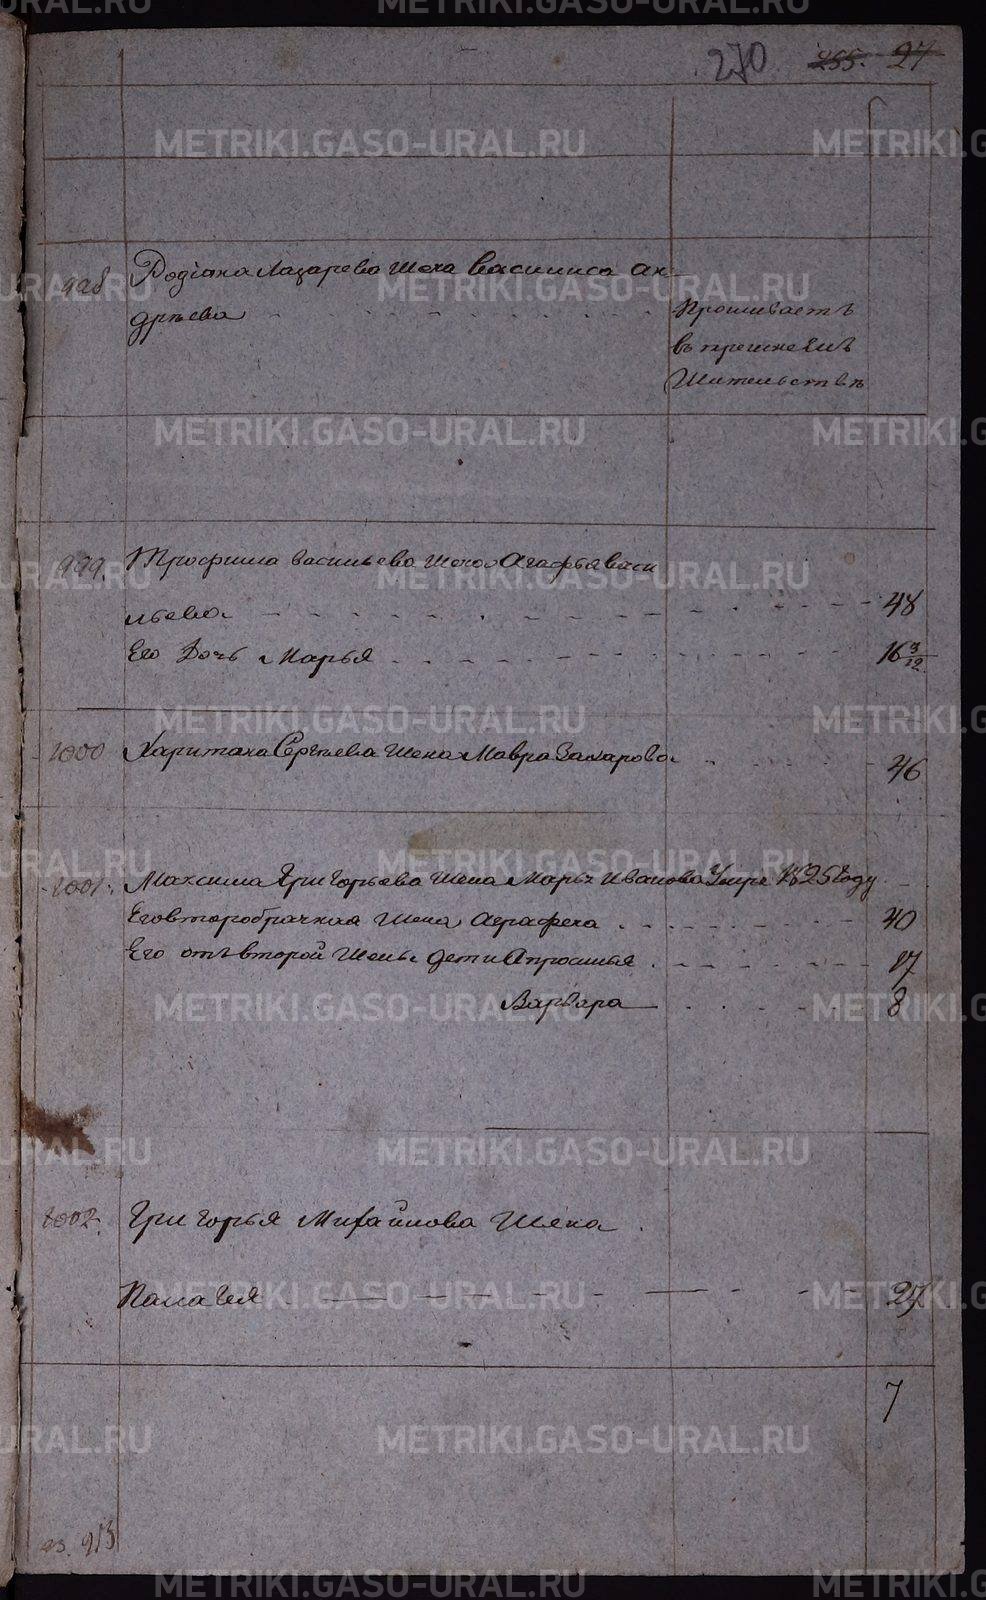 270 255. 27
998 Родіона Лазарева жена Василиса Ан-
дрѣева
Проживаетъ
въ прежнемъ
жительствѣ
999. Трофима Васильева жена Агафья Васи
льева. 48
Его дочь Марья 16 3/12
1000 Харитона Сергѣева жена Мавра Захарова 46
1001. Максима Григорьева жена Марья Иванова Умре 1825 году
Его второбрачная жена Аграфена 40
Его отъ второй жены дети Апросинья 17
Варвара 8
1002. Григорья Михайлова жена
Палагея 27
7
213
METRIKI.GASO-URAL.RU